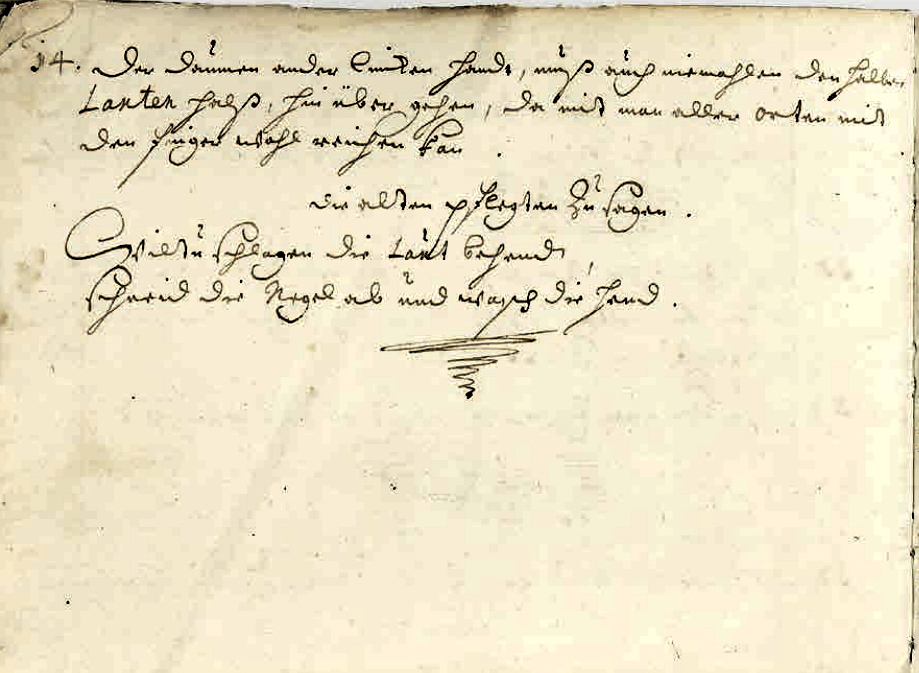 14. Der daumen an der lincken handt, muß auch niemahlen den halben
Lauten halß, hin über gehen, da mit man aller orten mit
den finger wohl reichen kan.
Die alten pflegten zu sagen.
Wiltu schlagen die Laut behend,
schneid die Negel ab und wasch die hend.